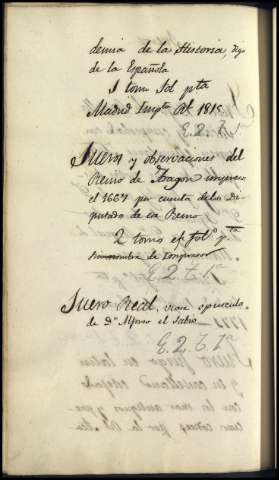 demia de la Historia, digo
de la Española
1 tomo fol pta
Madrid Impta Rl 1815
E. 2. t.
Fueros y observaciones del
Reino de Aragon impreso
el 1667 por cuenta de los Di-
putados de ese Reino
2 tomos en fol° pta
de impresor
E. 2. t. 1ª
Fuero Real, vease opusculos
de dn Alfonso el Sabio
E. 2. t. 1ª